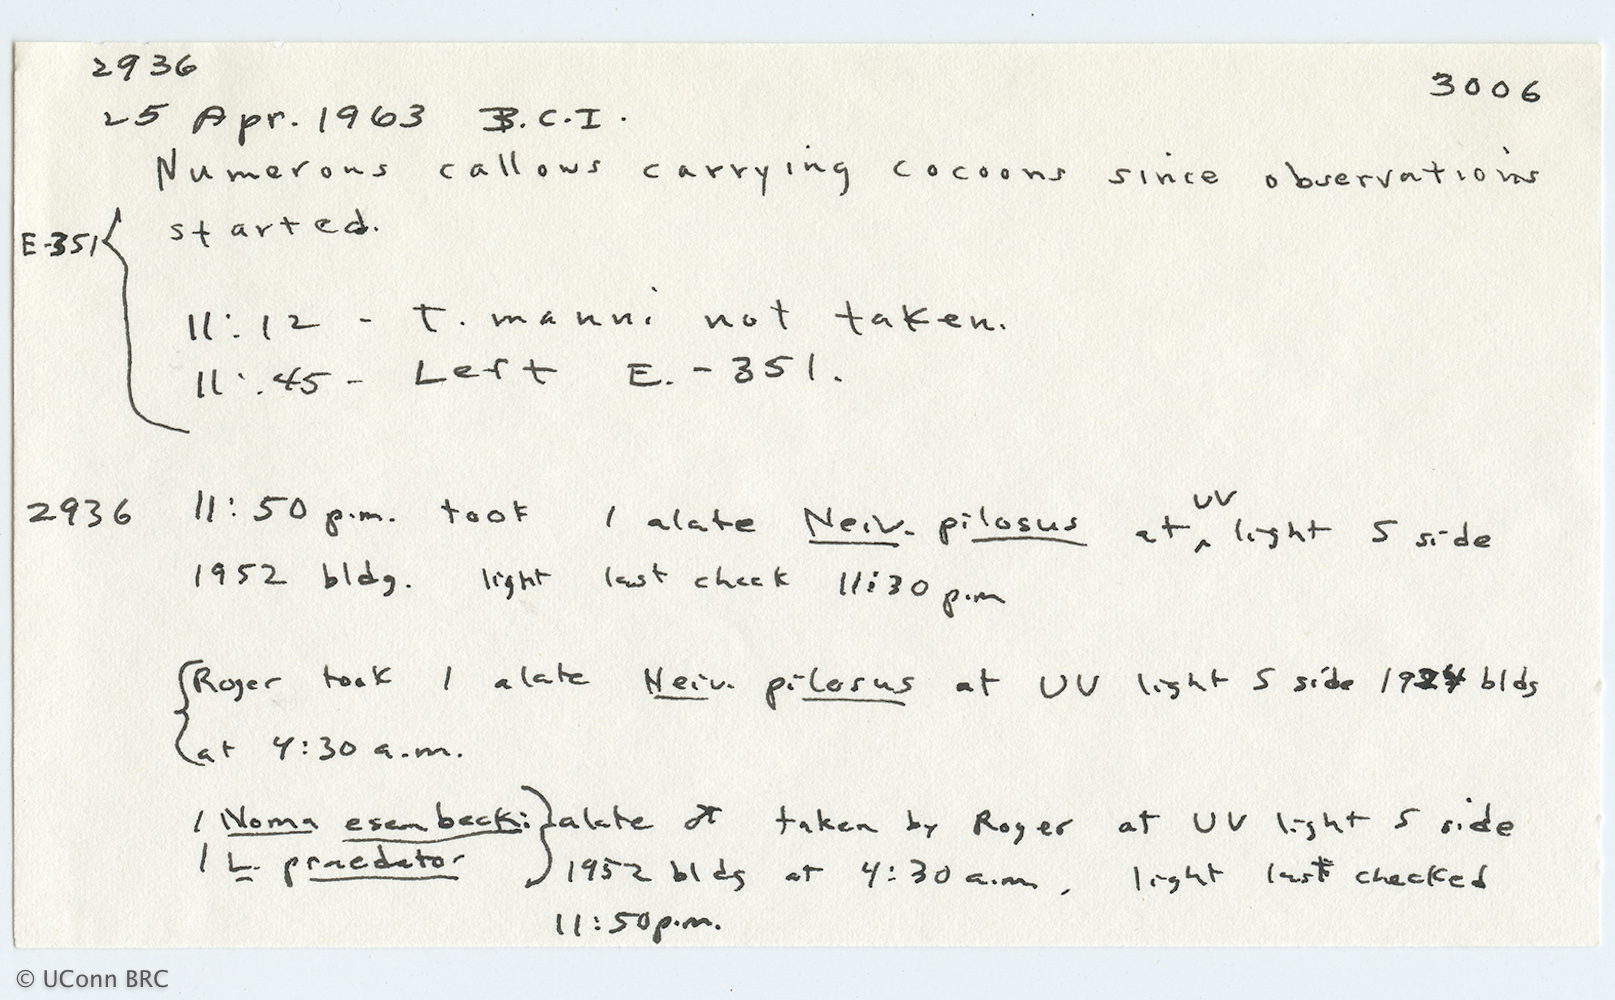 2936
3006
25 Apr. 1963 B.C.I.
Numerous callows carrying cocoons since observations
E-351 started.
11:12 - T. manni not taken.
11:45 - Left E.-351.
2936 11:50 p.m. took 1 alate Neiv. pilosus at UV light S side
1952 bldg. light last check 11:30 p.m
Roger took 1 alate Neiv. pilosus at UV light S side bldg
at 4:30 a.m.
1 Noma esenbecki alate ♂ taken by Roger at UV light S side
1 L. praedator 1952 bldg at 4:30 a.m. light last checked
11:50 p.m.
© UConn BRC